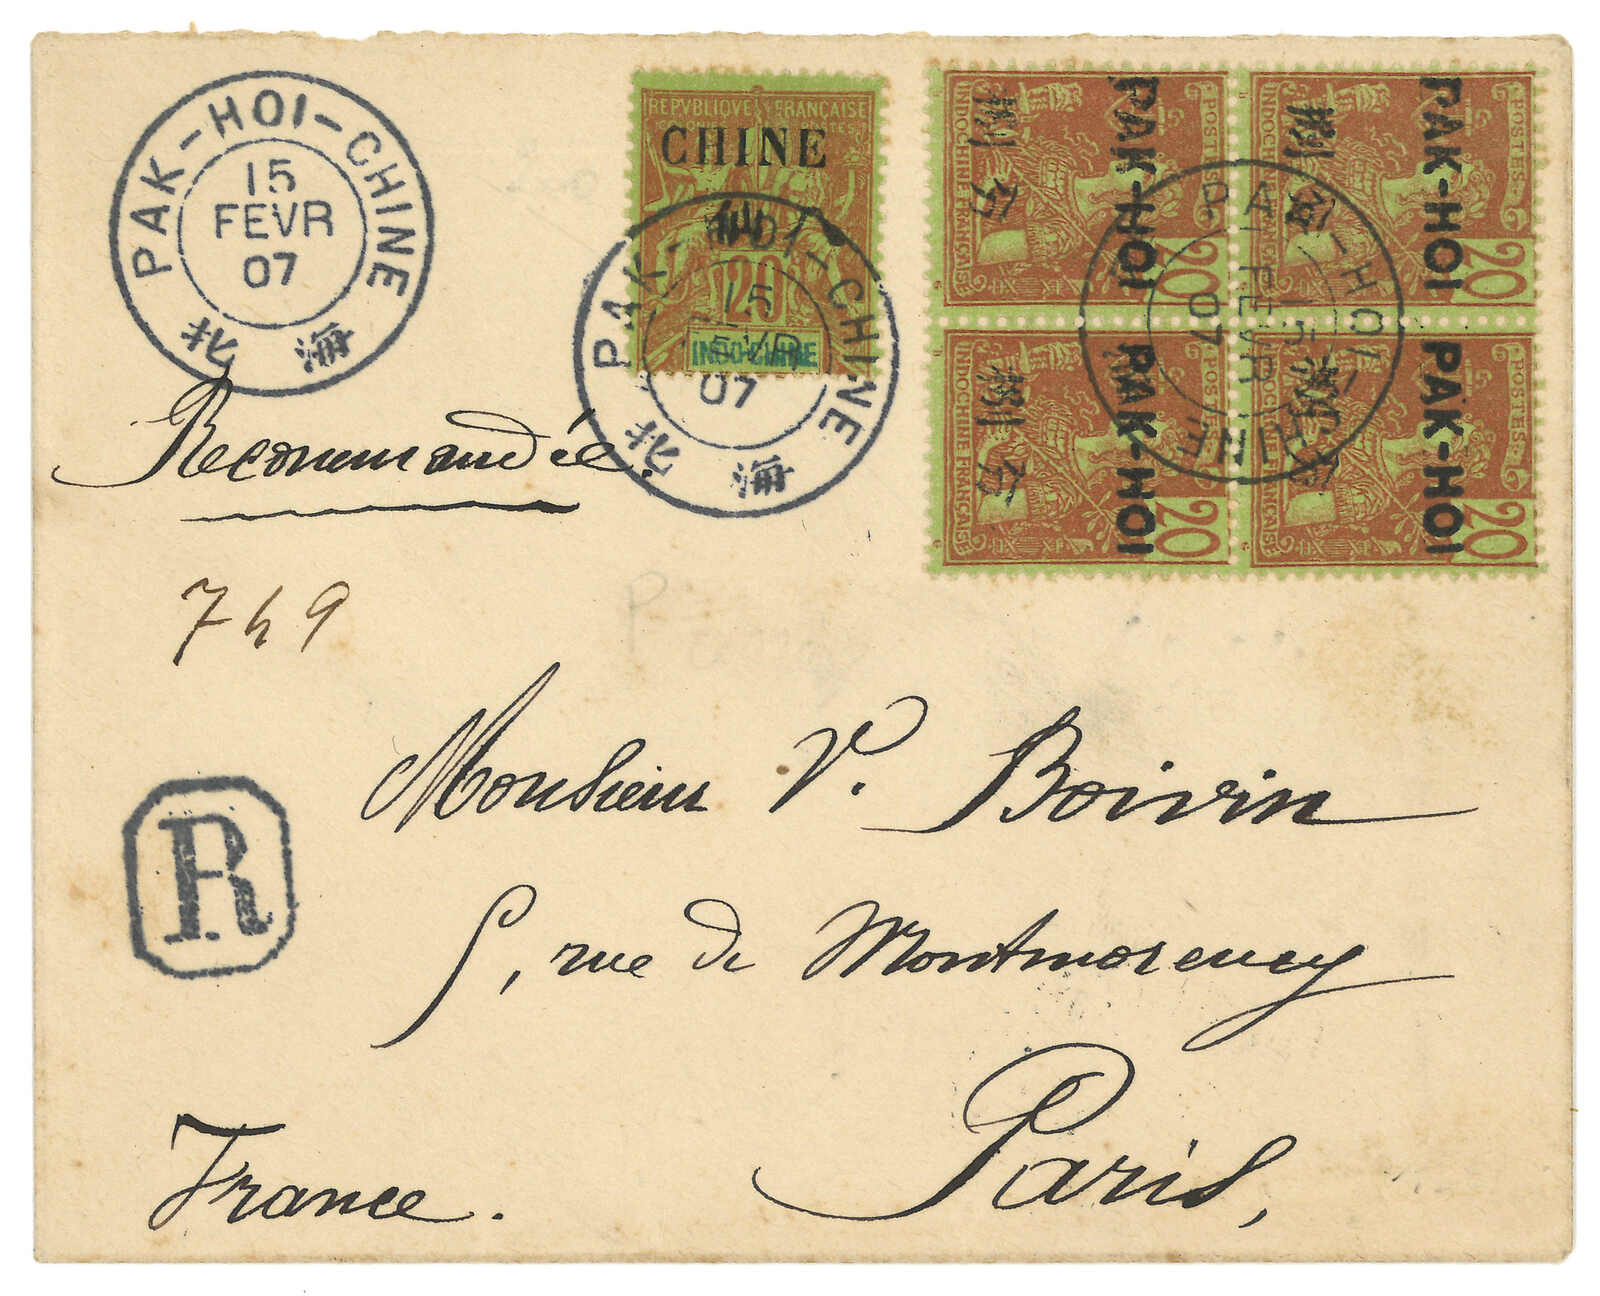 PAK-HOI-CHINE
15
FEVR
07
北海
REPVBLIQVE FRANÇAISE
CHINE
20
INDO-CHINE
PAK-HOI-CHINE
15
FEVR
07
北海
POSTES
INDOCHINE FRANÇAISE
PAK-HOI
20
POSTES
INDOCHINE FRANÇAISE
PAK-HOI
20
POSTES
INDOCHINE FRANÇAISE
PAK-HOI
20
POSTES
INDOCHINE FRANÇAISE
PAK-HOI
20
PAK-HOI-CHINE
15
FEVR
07
Recommandée.
749
R
Monsieur V. Boivin
5, rue de Montmorency
Paris,
France.